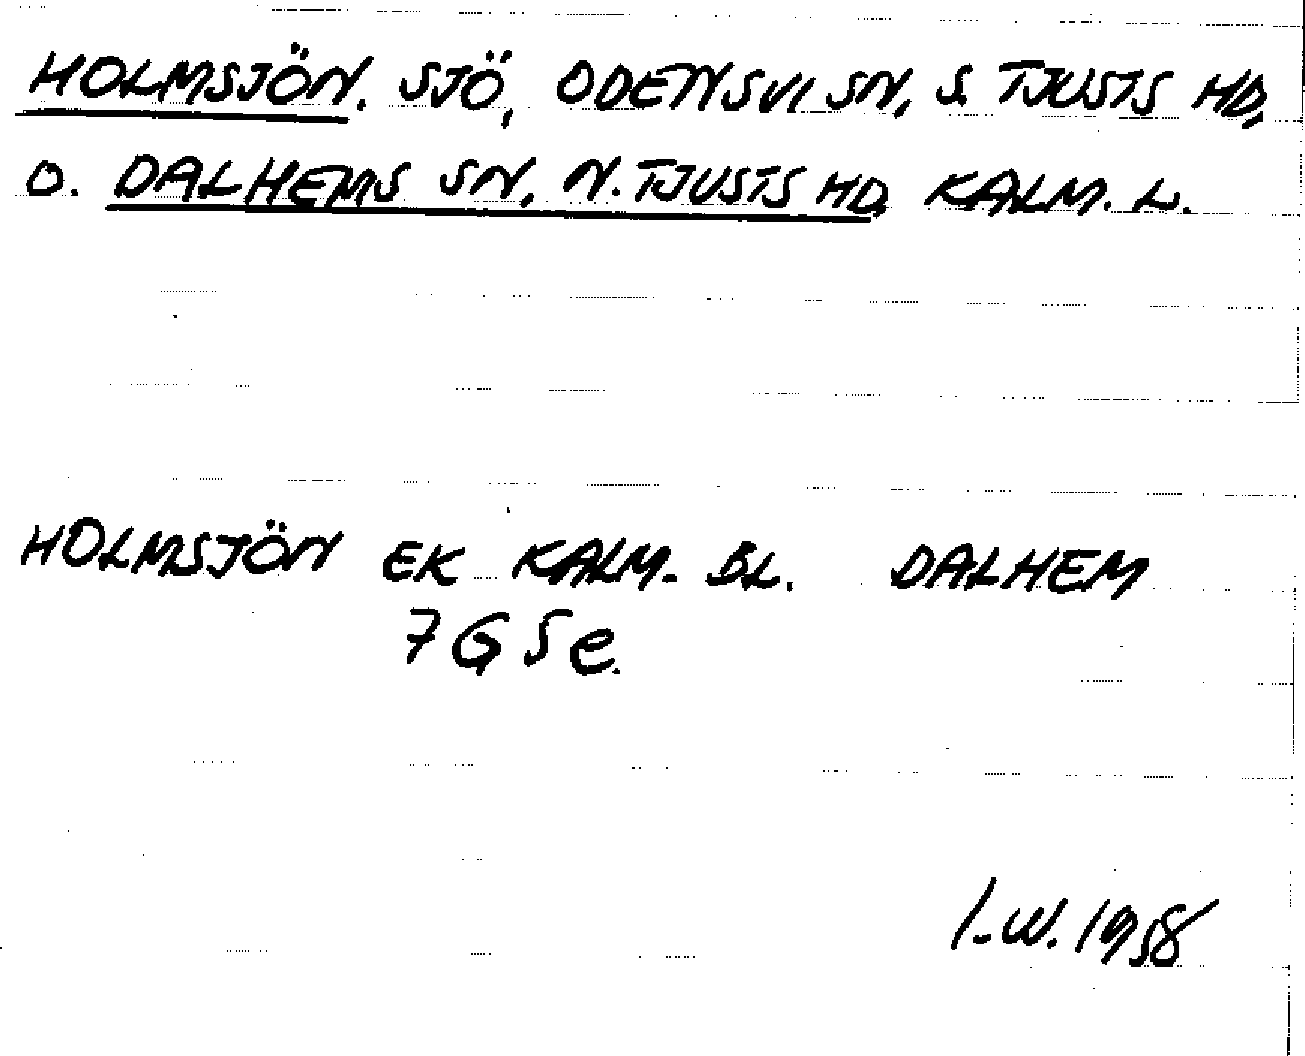 HOLMSJÖN. SJÖ, ODENSVI SN, S. TJUSTS HD,
O. DALHEMS SN, N. TJUSTS HD, KALM. L.
HOLMSJÖN EK KALM. BL. DALHEM
7G 5e.
I.W. 1958